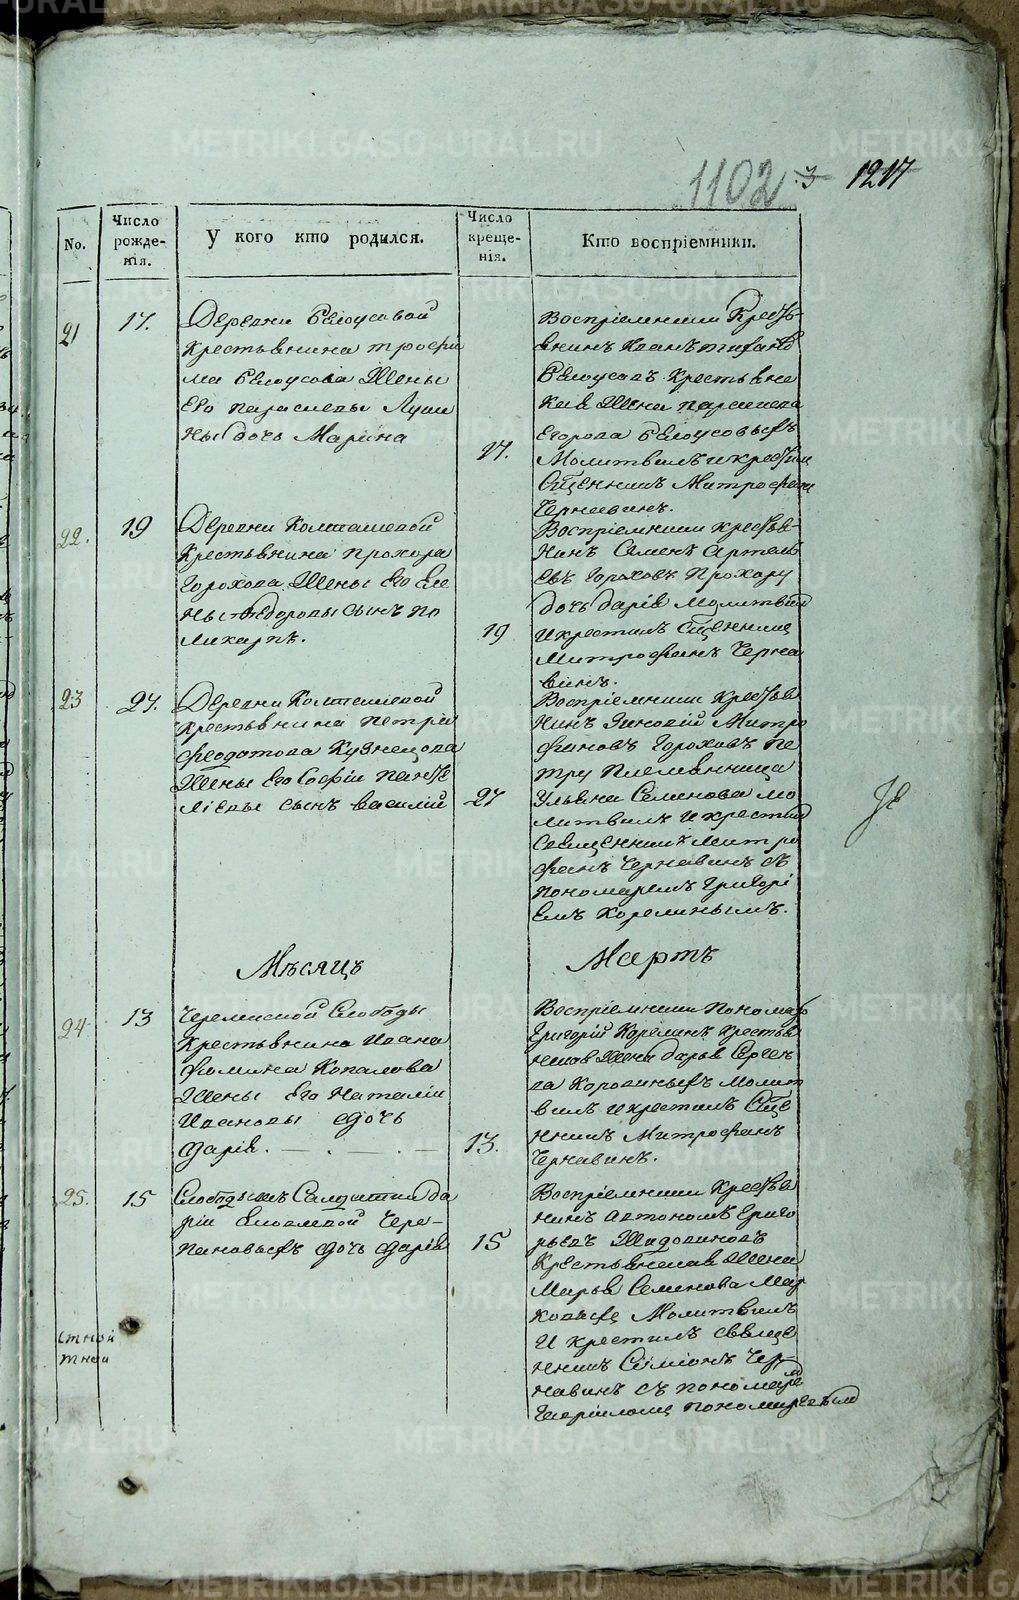 1102 3 1217
No.
Число рожде-нія.
У кого кто родился.
Число креще-нія.
Кто воспріемники.
21
17.
Деревни Белоусовой
Крестьянина трофи
ма Белоусова Жены
Его параскевы Луки
ны дочь Марина
17.
Воспріемники Кресть-
янинъ Иванъ
Белоусовъ Крестьянс
кая Жена параскева
Егорова Белоусовыхъ
Молитвилъ и крестил
Сщенникъ Митрофанъ
Чернавинъ.
22.
19
Деревни Колташевой
Крестьянина прохора
Горохова Жены Его Еле
ны Федоровы сынъ по
ликарпъ.
19
Воспріемники крестья-
нинъ Семенъ Артемь
евъ Гороховъ Прохору
дочь дарія Молитвил
и крестилъ Сщенник
Митрофанъ Черна
винъ.
23
27.
Деревни Колташевой
крестьянина петра
феодотова Кузнецова
Жены Его Софіи панте
лѣевы сынъ василій
27
Воспріемники Крестья
нинъ Зиновій Митро
фановъ Гороховъ пе
тру племянница
Ульяна Семенова мо
литвилъ и крестил
Священникъ митро
фанъ Чернавинъ съ
пономаремъ Григорі
емъ Корелинымъ.
Мѣсяцъ
Мартъ
24
13
Черемиской Слободы
Крестьянина Ивана
фомина Копалова
Жены Его Наталіи
Ивановы дочь
дарія. — . — . —
13.
Воспріемники Пономарь
Григорій Корелинъ крестья
нская Жена дарья Сергѣе
ва Молит
вилъ и крестилъ Сще
нникъ Митрофанъ
Чернавинъ.
25.
15
да
ріи Яковлевой Чере-
пановыхъ дочь дарія
15
Воспріемники Крестья
нинъ Автономъ Григо
рьевъ
Крестьянская Жена
Марья Семенова Мар
ковыхъ Молитвилъ
и крестилъ свяще
нникъ Сіміонъ Чер-
навинъ съ пономаре
м